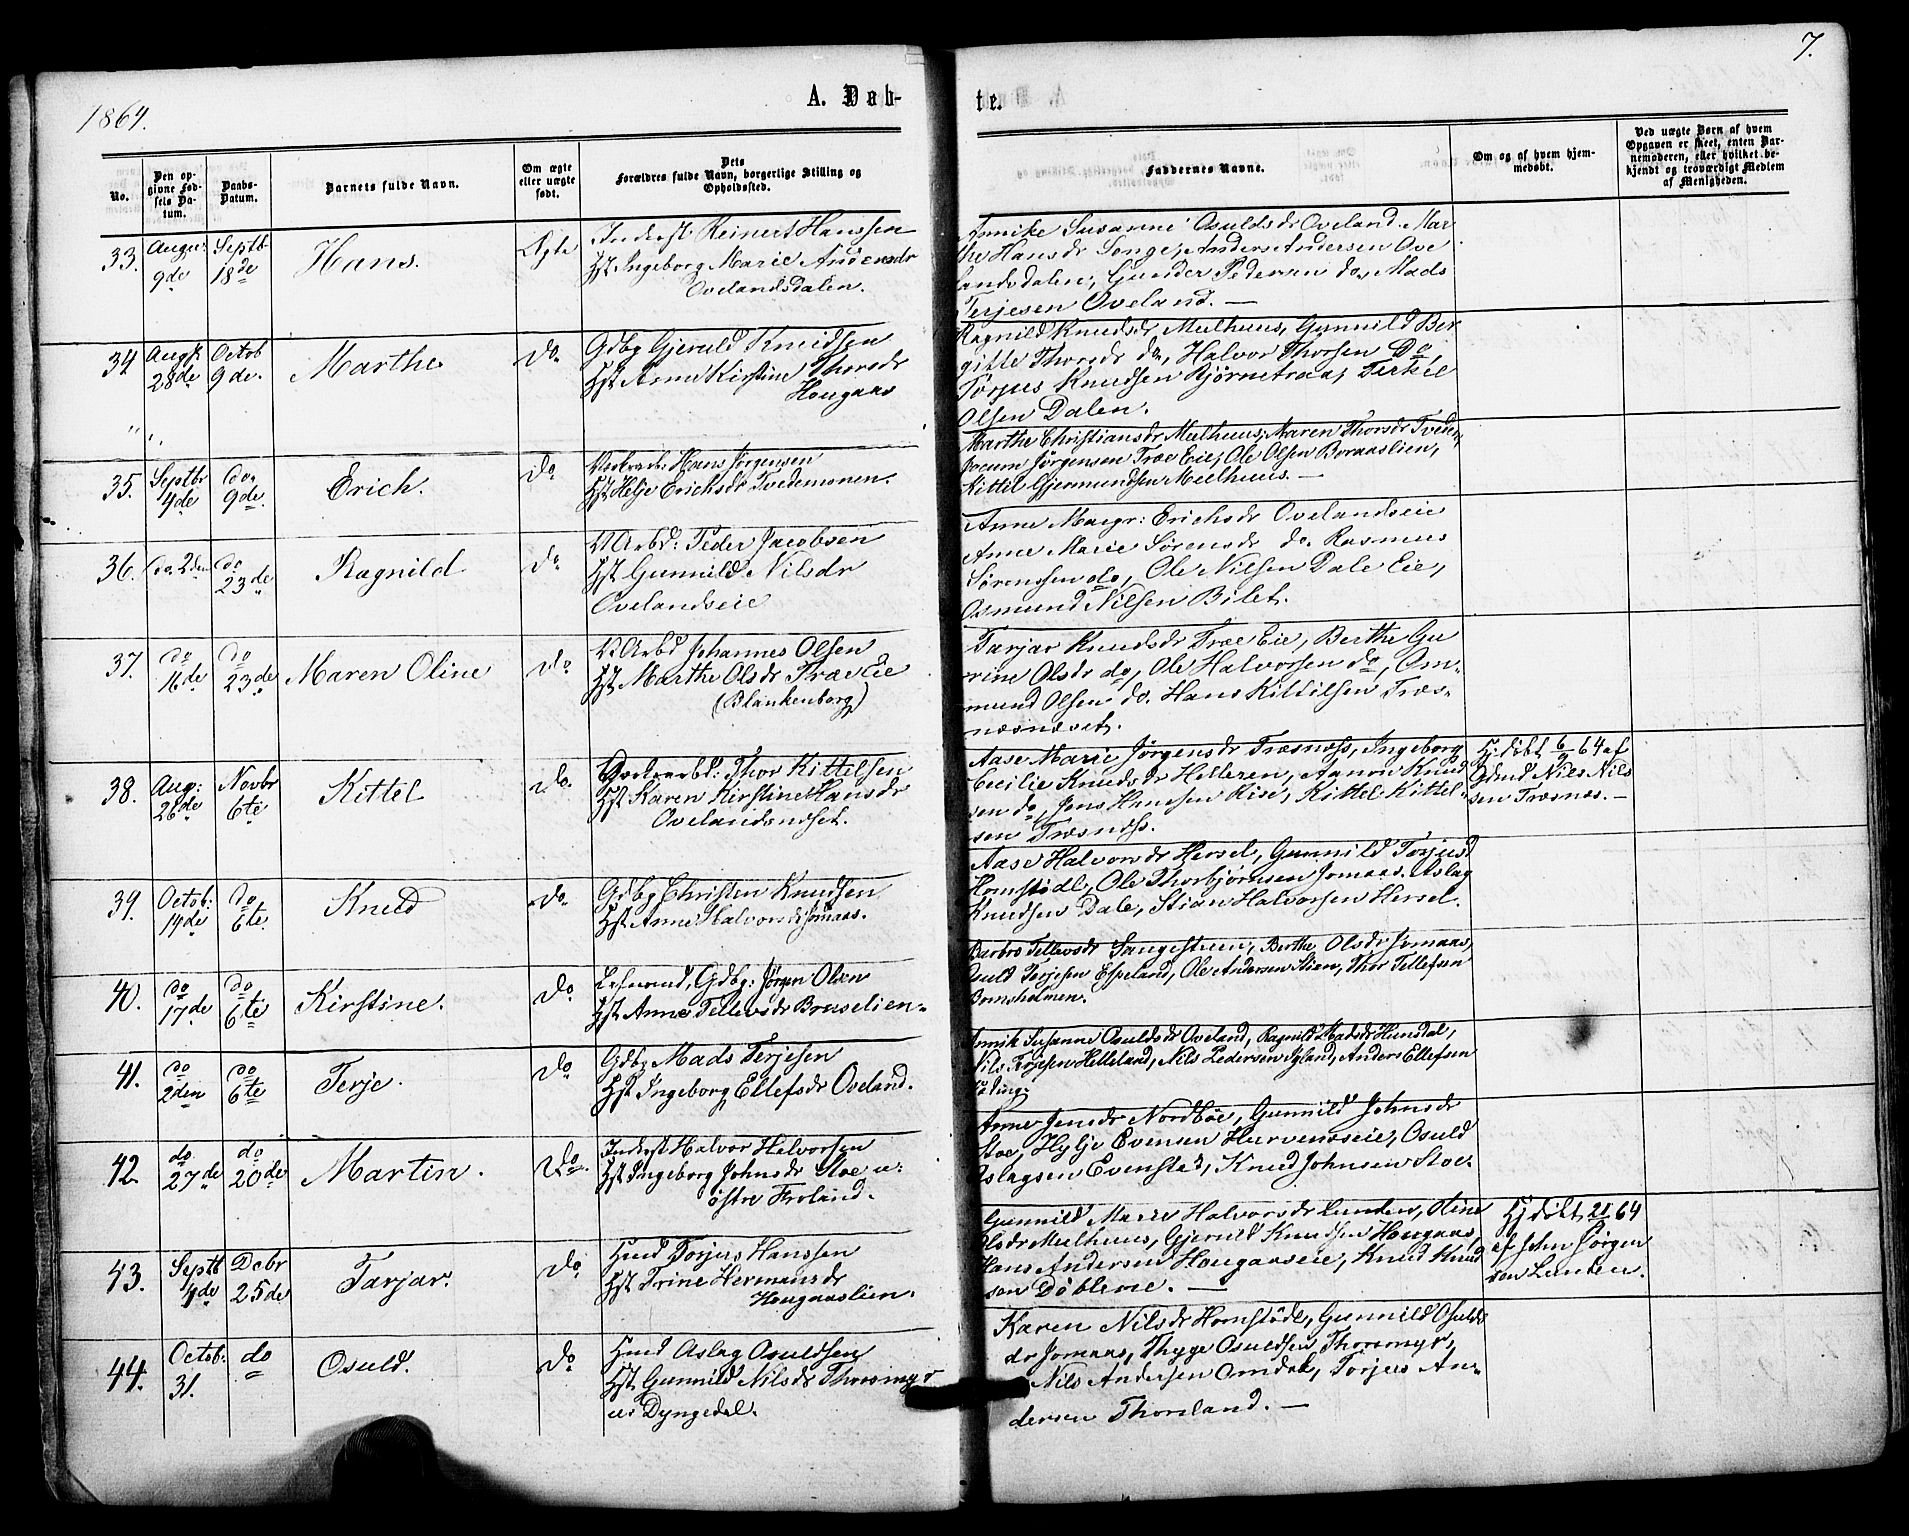 1864.
A. Døb-
te.
7.
No.
Den op-
givne Fød-
sels Da-
tum.
Daabs-
Datum.
Barnets fulde Navn.
Om ægte
eller uægte
født.
Dets
Forældres fulde Navn, borgerlige Stilling og
Opholdssted.
Faddernes Navne.
Om og af hvem hjem-
medøbt.
Ved uægte Børn af hvem
Opgaven er skeet, enten Bar-
nemoderen, eller hvilket be-
kjendt og troværdigt Medlem
af Menigheden.
33.
Augu:
9de
Septb
18de
Hans.
Ægte
Inderst Reinert Hanssen
Hst Ingeborg Marie Andersdr
Ovelandsdalen.
Annike Susanne Osuldsdr Oveland. Mar
the Hansdr Songe, Anders Andersen Ove
landsdalen, Gunder Pedersen do, Mads
Terjesen Oveland. —
34
Augst
28de
Octob
9de.
Marthe
do.
Gdbg Gjeruld Knudsen
Hst Anne Kirstine Thorsdr
Hougaas
Ragnild Knudsdr Mulhuus, Gunnild Ber
gitte Thorsdr do, Halvor Thorsen do,
Torjus Knudsen Bjørnetraa, Terkel
Olsen Dalen.
35.
Septbr
4de
do.
9de.
Erich.
do
Hans Jørgensen
Hst Helje Erichsdr Tvedemonen.
Marthe Christiansdr Mulhuus, Maren Thorsdr Tvedem,
Jørgensen Træ Eie, Ole Olsen Boraaslien,
Kittil Gjermundsen Mulhuus. —
36.
do. 2den
do
23de
Ragnild
do.
V Arbd: Peder Jacobsen
Hst Gunnild Nilsdr
Ovelandseie
Anne Margr: Erichsdr Ovelandseie
Anne Marie Sørensdr do. Rasmus
Sørenssen do, Ole Nilsen Dale Eie,
Osmund Nilsen Bilet.
37.
do
16de
do
23de
Maren Oline
do
V Arbd Johannes Olsen
Hst Marthe Olsdr Træ Eie
(Blankenborg)
Tarjar Knudsdr Træ Eie, Berthe Gu
rine Olsdr do, Ole Halvorsen do, Om-
mund Olsen do. Hans Kittilsen Træs-
næsnæset.
38.
Aug:
28de
Novbr
6te
Kittel
do.
Thor Kittelsen
Hst Karen Kirstine Hansdr
Ovelandsndset.
Aase Marie Jørgensdr Træsnæss, Ingeborg
Cecilie Knudsdr Helleren, Aanon Knud
sen do, Jens Hansen Rise, Kittel Kittel-
sen Træsnæss.
Hj. døbt 6/9 64 af
Gdmd Nils Nils
sen Træsnæs. —
39.
Octob:
14de
do
6te.
Knud
do.
Gdbg Christen Knudsen
Hst Anne Halvorsdr Jomaas.
Aase Halvorsdr Hersel, Gunnild Torjusd
Homstödl, Ole Thorbjørnsen Jomaas. Aslag
Knudsen Dale, Stian Halvorsen Hersel.
40.
do
17de
do
6te
Kirstine.
do
Gdbg: Jørgen Olsen
Hst Anne Tellevsdr Bruselien.
Barbro Tellevsdr Sangesteen, Berthe Olsdr Jomaas,
Osuld Torjesen Espeland, Ole Andersen Stien, Thor Tellefsen
Bomsholmen.
41.
do
2den
do
6te
Terje.
do
Gdbg Mads Terjesen
Hst Ingeborg Ellefsdr Oveland.
Annik Susanne Osuldsdr Oveland, Ragnild Madsdr Hunsdal,
Nils Terjesen Helleland, Nils Pedersen Igland, Anders Ellefsen
42.
do
27de
do
20de
Martin.
do.
Inderst Halvor Halvorsen
Hst Ingeborg Johnsdr Stoe u.
østre Froland.
Anne Jensdr Nordbøe, Gunnild Johnsdr
Stoe, Hylje Evensen Hurvenæseie, Osuld
Aslagsen Evenstad, Knud Johnsen Stoe.
43.
Septb
4de
Dcbr
25de
Tarjar.
do
Huusmd Torjus Hanssen
Hst Trine Hermansdr
Hougaaslien.
Gunnild Marie Halvorsdr Lunden, Oline
Olsdr Mulhuus, Gjeruld Knudsen Hougaas,
Hans Andersen Hougaaseie, Knud Knud
sen Døblerne. —
Hj døbt 64
af John Jørgen
sen Lunden.
44.
Octob:
31.
do
Osuld.
do
Huusmd Aslag Osuldsen
Hst Gunnild Nilsdr Thorsmyr
u: Dyngedal.
Karen Nilsdr Homstödl, Gunnild Osulds
dr Jomaas, Thyge Osuldsen Thorsmyr,
Nils Andersen Omdal, Torjus An-
dersen Thorsland. —